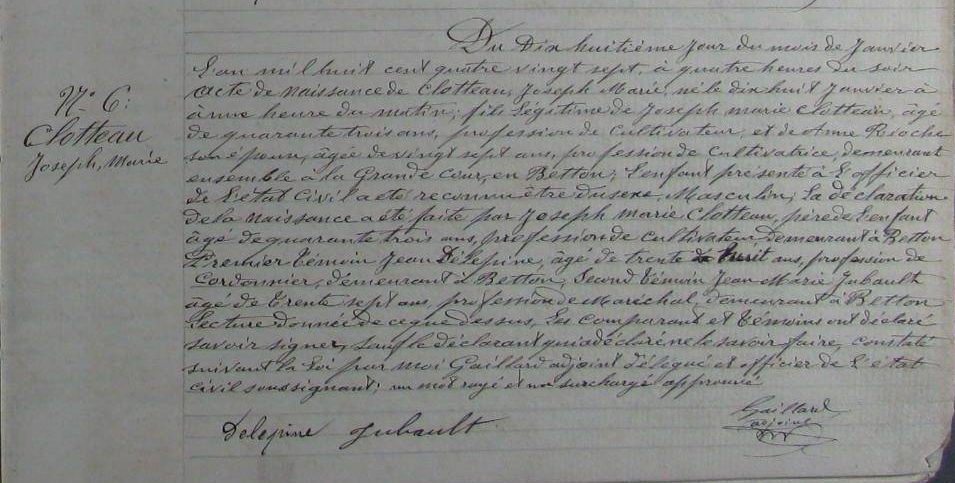 Du Dix huitième jour du mois de Janvier
L'an mil huit cent quatre vingt sept, à quatre heures du soir
N° 6:
Clotteau
Joseph, Marie
acte de naissance de Clotteau, Joseph Marie, né le dix huit Janvier à
à une heure du matin; fils légitime de Joseph marie Clotteau, âgé
de quarante trois ans, profession de Cultivateur, et de Anne Rioche
son épouse, âgée de vingt sept ans, profession de Cultivatrice, demeurant
ensemble à la Grande Cour, en Betton; l'enfant présenté à L'officier
de L'état Civil a été reconnu être du sexe Masculin; La déclaration
de la naissance a été faite par Joseph marie Clotteau, père de l'enfant
âgé de quarante trois ans, profession de Cultivateur demeurant à Betton
Premier témoin Jean Delepine, âgé de trente huit ans, profession de
Cordonnier, demeurant à Betton, Second témoin Jean Marie Jubault
âgé de trente sept ans, profession de Maréchal, demeurant à Betton
Lecture donnée de ce que dessus, Les comparant et témoins ont déclaré
savoir signer, sauf le déclarant qui a déclaré ne le savoir faire, constaté
suivant la Loi par moi Gaillard adjoint délégué et officier de L'état
civil soussignant; un mot rayé et un surchargé approuvé
Delepine Jubault
Gaillard
adjoint